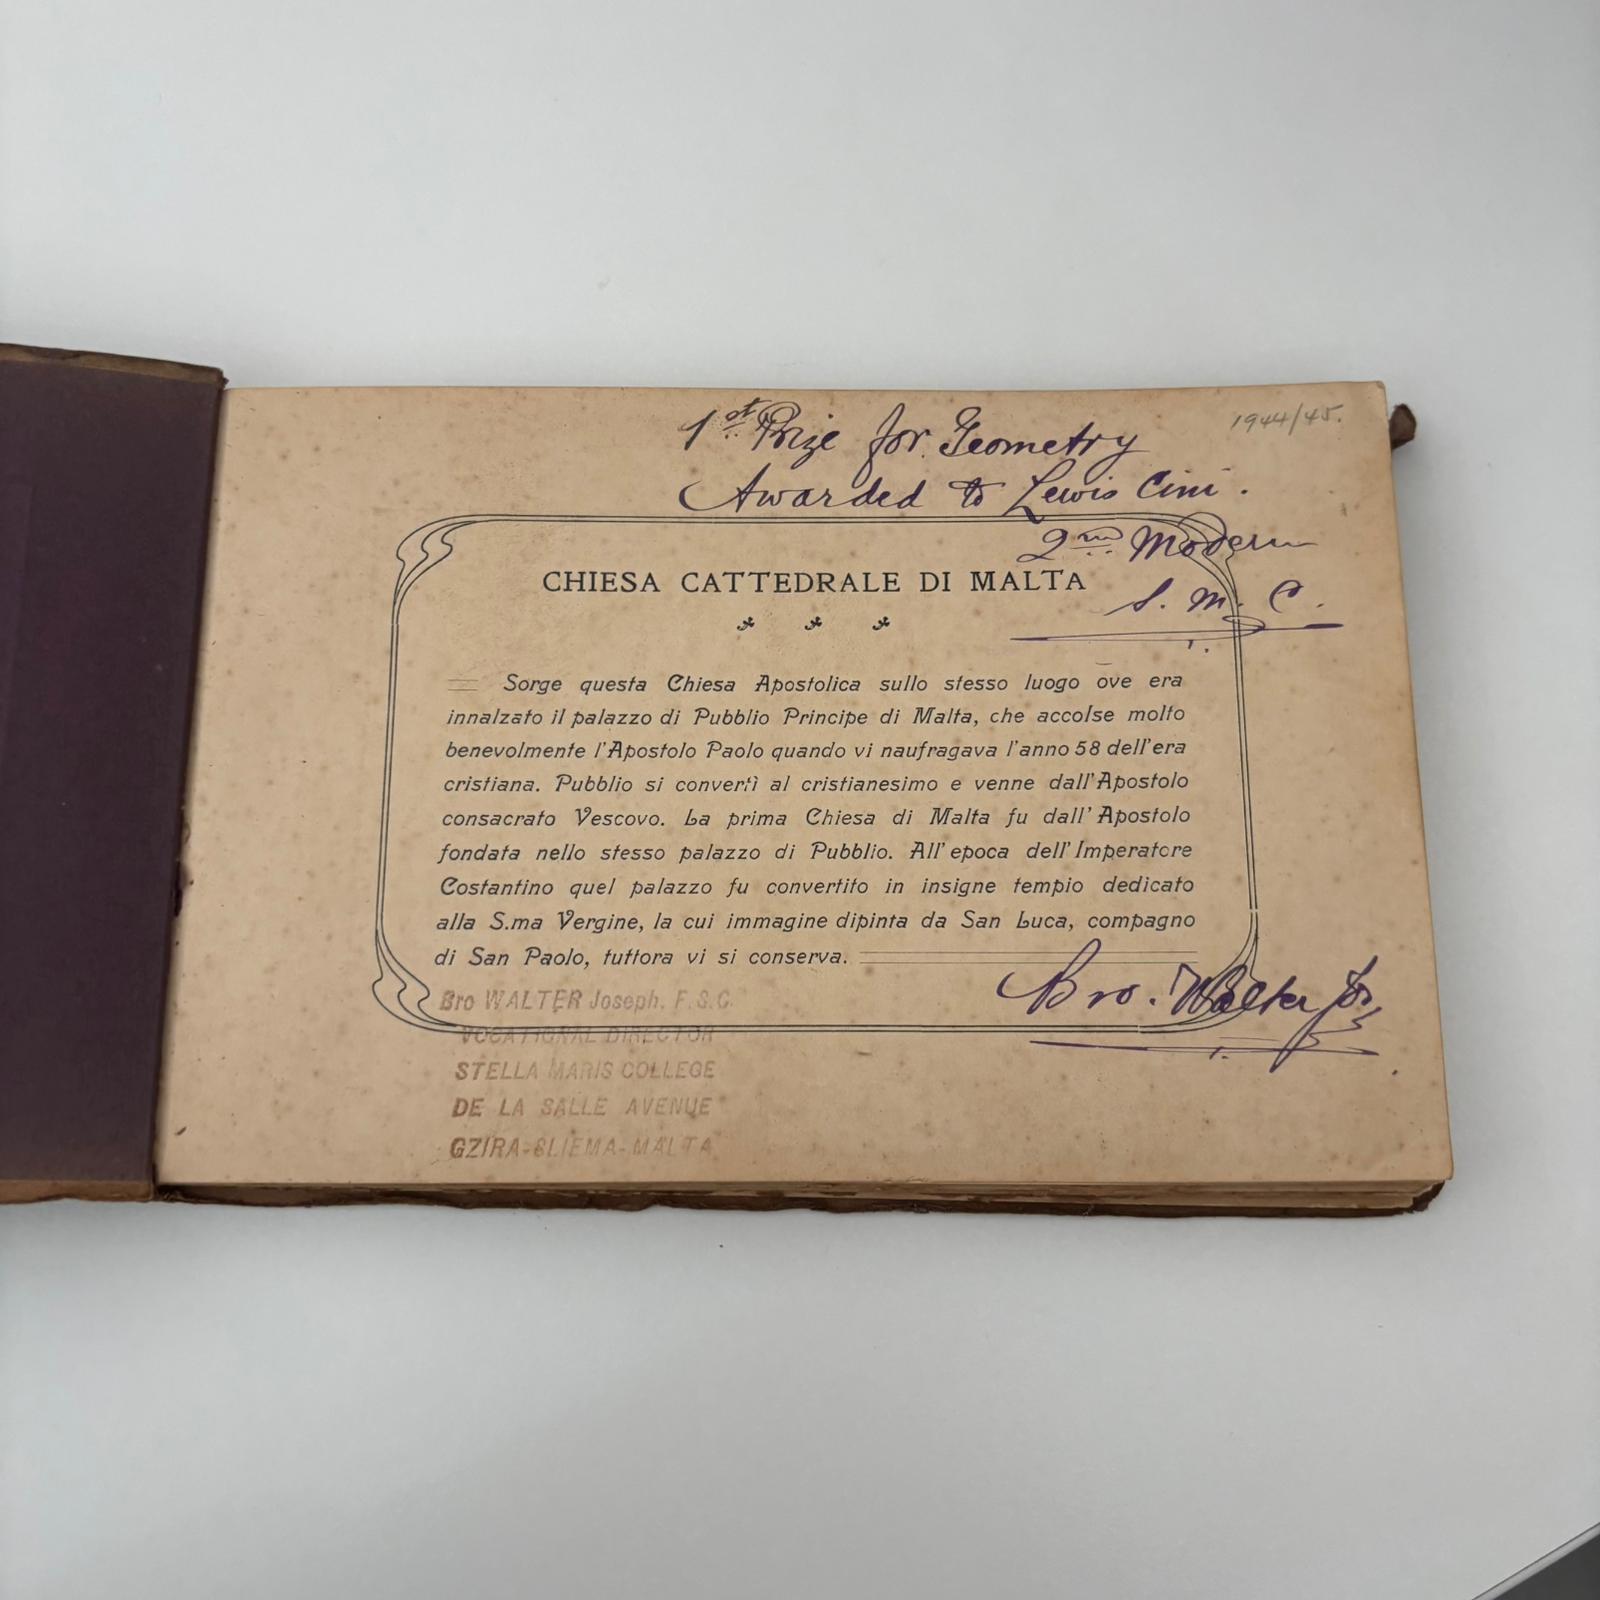 1944/45.
1st Prize for Geometry
Awarded to Lewis Cini.
2nd Modern
S. M. C.
CHIESA CATTEDRALE DI MALTA
Sorge questa Chiesa Apostolica sullo stesso luogo ove era
innalzato il palazzo di Pubblio Principe di Malta, che accolse molto
benevolmente l'Apostolo Paolo quando vi naufragava l'anno 58 dell'era
cristiana. Pubblio si convertì al cristianesimo e venne dall'Apostolo
consacrato Vescovo. La prima Chiesa di Malta fu dall'Apostolo
fondata nello stesso palazzo di Pubblio. All'epoca dell'Imperatore
Costantino quel palazzo fu convertito in insigne tempio dedicato
alla S.ma Vergine, la cui immagine dipinta da San Luca, compagno
di San Paolo, tuttora vi si conserva.
Bro. Walter Jos
Bro WALTER Joseph. F.S.C.
VOCATIONAL DIRECTOR
STELLA MARIS COLLEGE
DE LA SALLE AVENUE
GZIRA-SLIEMA-MALTA